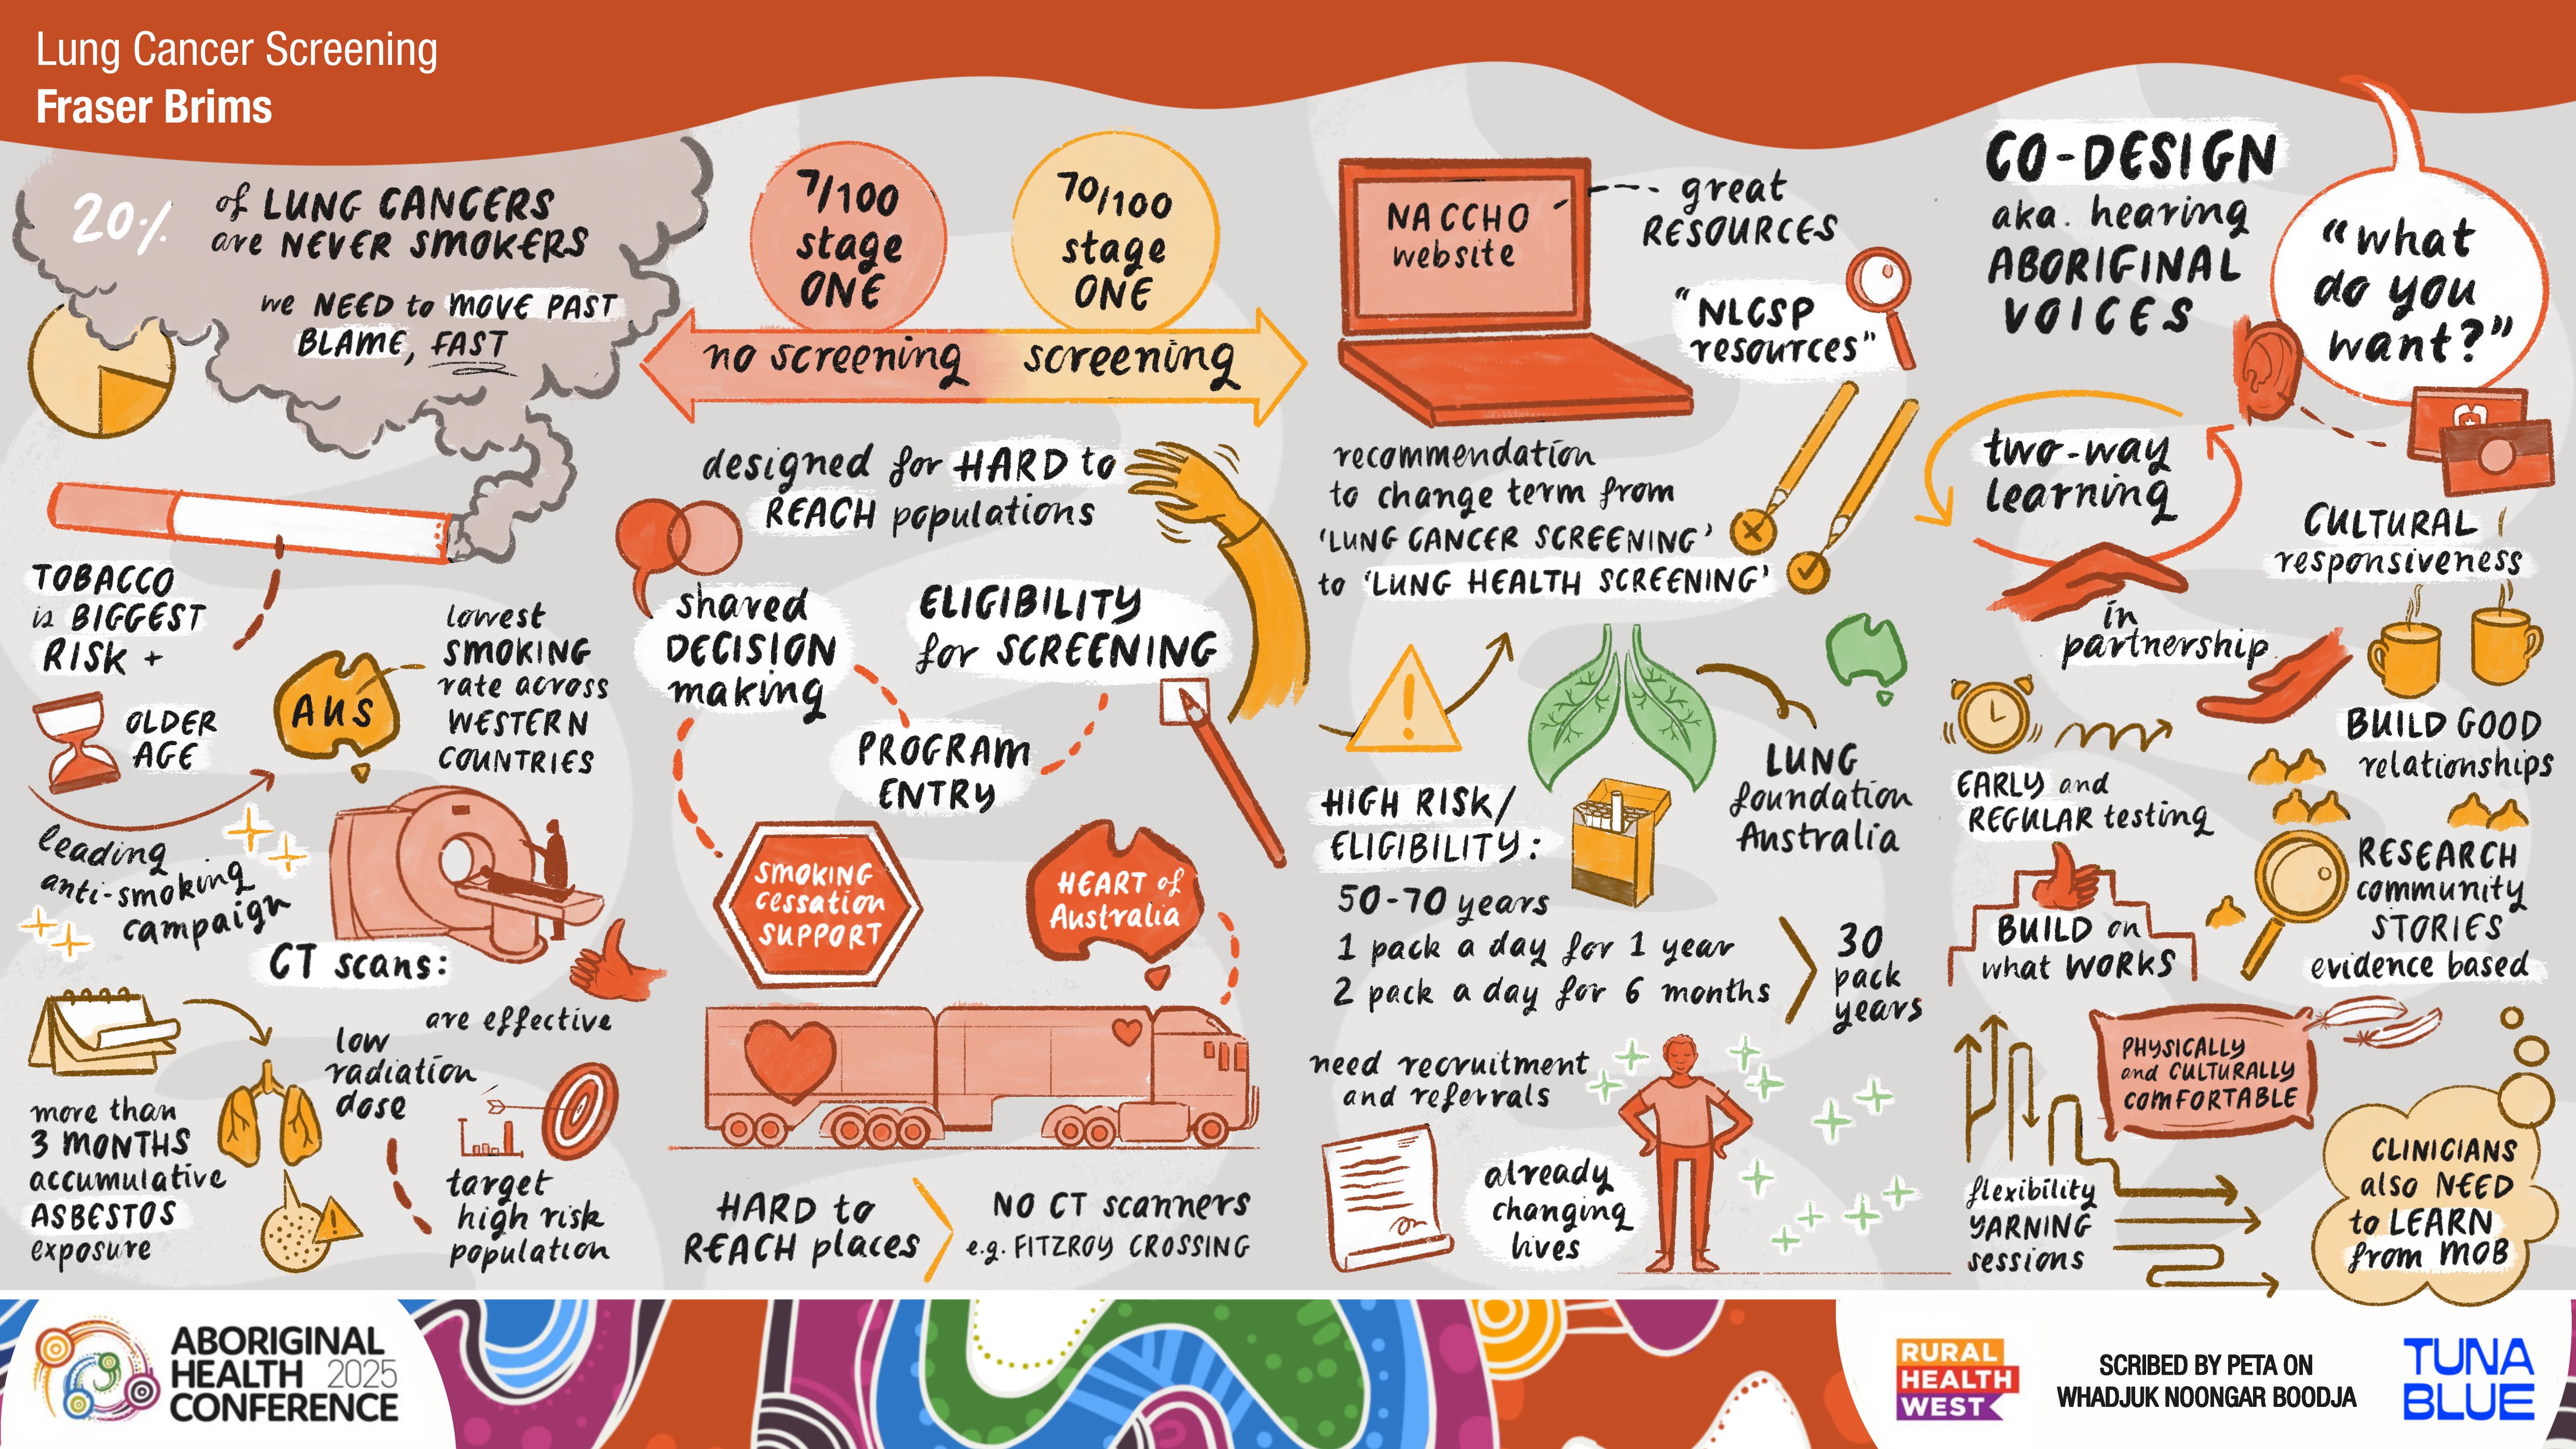 Lung Cancer Screening
Fraser Brims
20%
of LUNG CANCERS
are NEVER SMOKERS
we NEED to MOVE PAST
BLAME, FAST
TOBACCO
is BIGGEST
RISK +
OLDER
AGE
AUS
lowest
SMOKING
rate across
WESTERN
COUNTRIES
leading
anti-smoking
campaign
CT scans:
are effective
low
radiation
dose
target
high risk
population
more than
3 MONTHS
accumulative
ASBESTOS
exposure
7/100
stage
ONE
70/100
stage
ONE
no screening
screening
designed for HARD to
REACH populations
shared
DECISION
making
ELIGIBILITY
for SCREENING
PROGRAM
ENTRY
SMOKING
cessation
SUPPORT
HEART of
Australia
HARD to
REACH places
NO CT scanners
e.g. FITZROY CROSSING
NACCHO
website
great
RESOURCES
"NLCSP
resources"
recommendation
to change term from
'LUNG CANCER SCREENING'
to 'LUNG HEALTH SCREENING'
LUNG
foundation
Australia
HIGH RISK/
ELIGIBILITY:
50-70 years
1 pack a day for 1 year
2 pack a day for 6 months
30
pack
years
need recruitment
and referrals
already
changing
lives
CO-DESIGN
aka. hearing
ABORIGINAL
VOICES
"what
do you
want?"
two-way
learning
in
partnership
CULTURAL
responsiveness
BUILD GOOD
relationships
EARLY and
REGULAR testing
BUILD on
what WORKS
RESEARCH
community
STORIES
evidence based
PHYSICALLY
and CULTURALLY
COMFORTABLE
flexibility
YARNING
sessions
CLINICIANS
also NEED
to LEARN
from MOB
ABORIGINAL
HEALTH 2025
CONFERENCE
RURAL
HEALTH
WEST
SCRIBED BY PETA ON
WHADJUK NOONGAR BOODJA
TUNA
BLUE